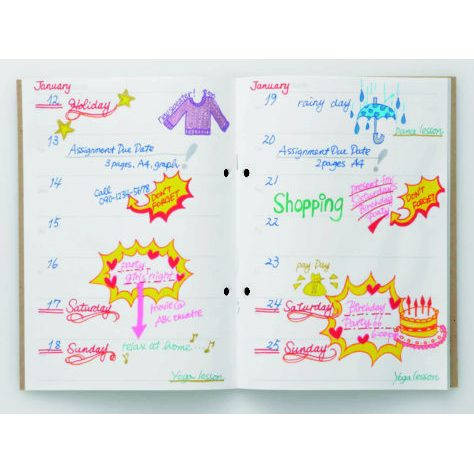 January
12
Holiday
13
Assignment Due Date
3 pages, A4, graph
!
14
Call
090-1234-5678
DON'T
FORGET
15
16
party
girls' night
17
Saturday
movie@
ABC theatre
18
Sunday
relax at home...
Yoga lesson
January
19
rainy day
Dance lesson
20
Assignment Due Date
2 pages, A4
!
21
Shopping
Present for
Birthday
party
DON'T
FORGET
22
23
pay Day
24
Saturday
Birthday
Party
25
Sunday
Yoga lesson